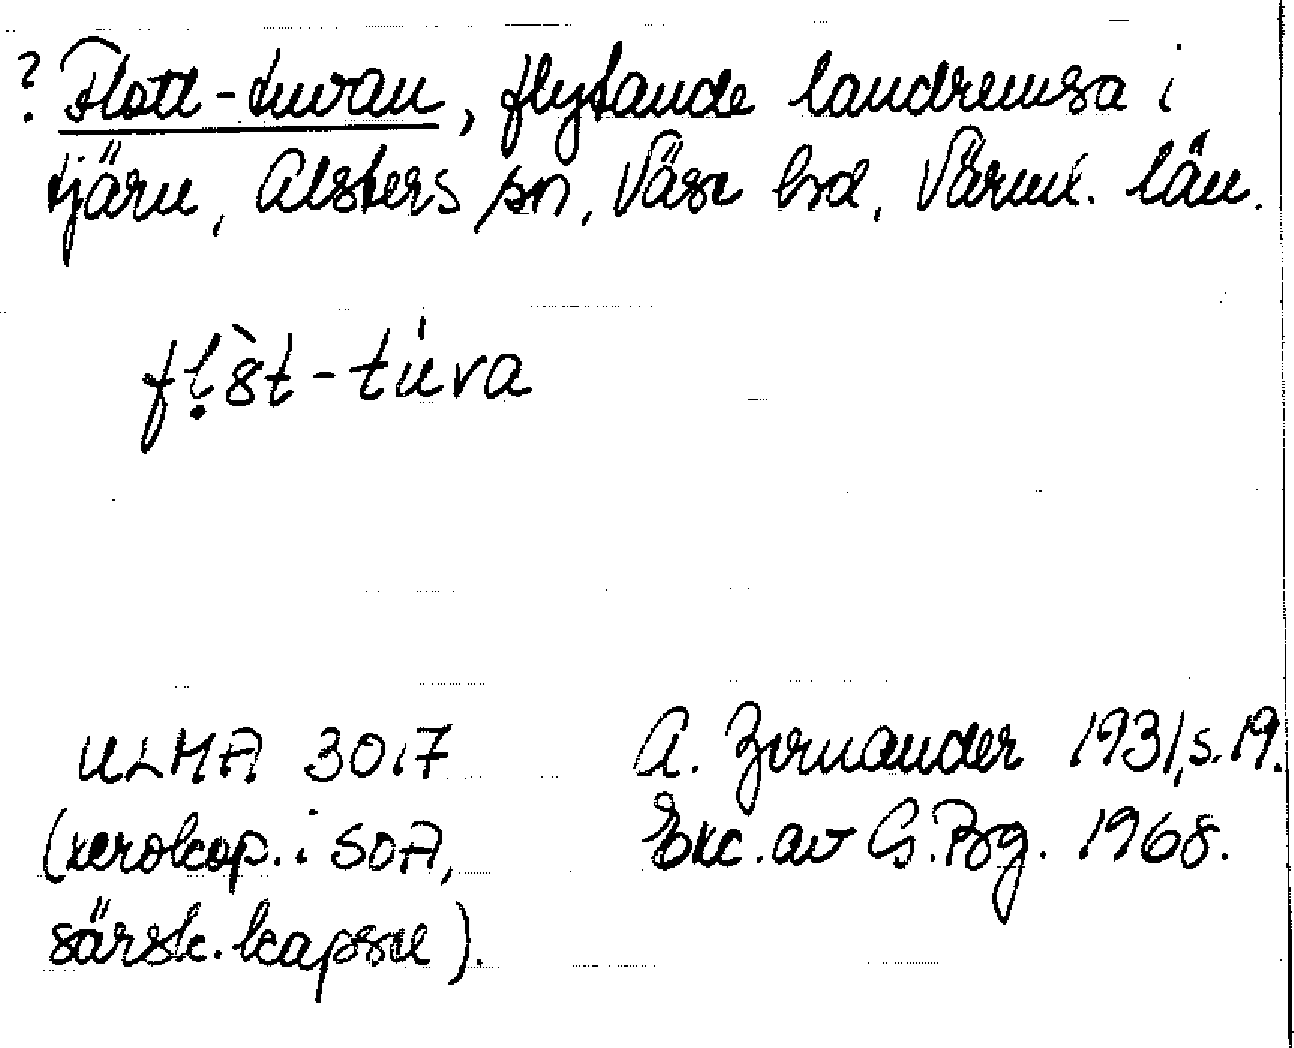 ? Flott-tuvan, flytande landremsa i
tjärn, Alsters sn, Väse hd, Värml. län.
fḷ̀8t-túva
ULMA 3017 A. Zernander 1931, s. 19.
(xerokop. i SOA, Exc. av G. Brg. 1968.
särsk. kapsel).